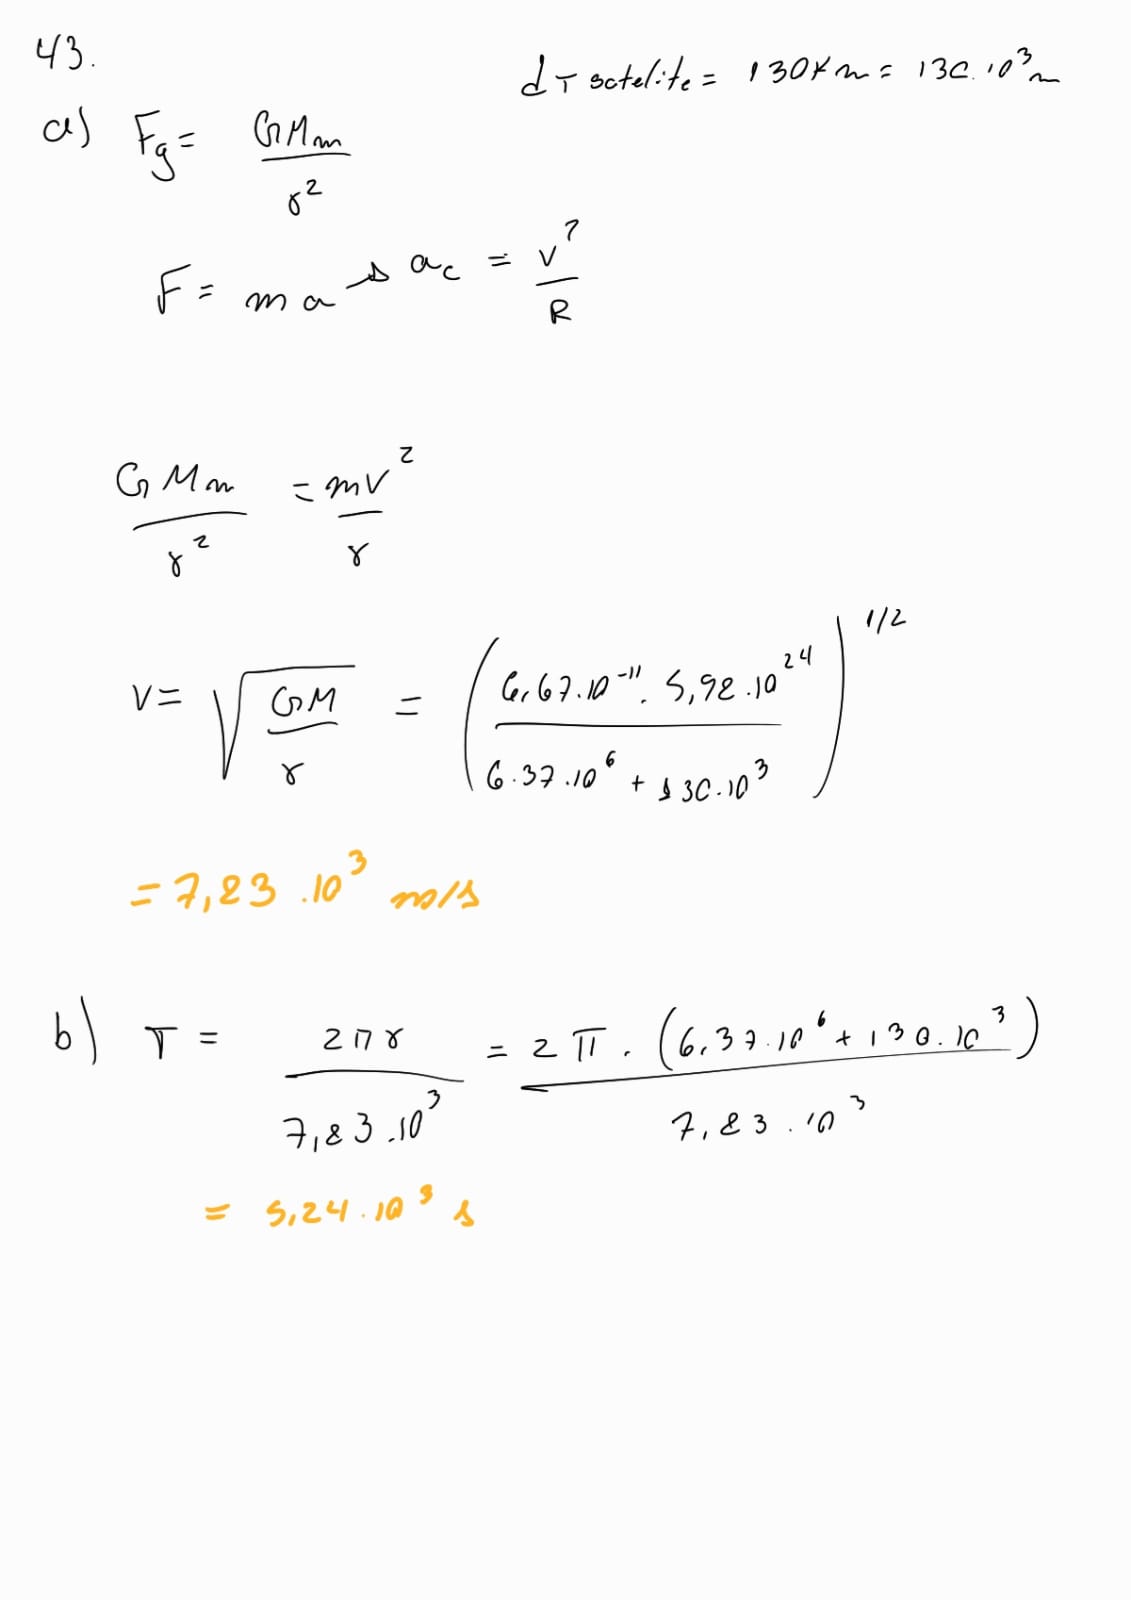 43.
d T satelite = 130 Km = 130.10³ m
a) Fg = GMm / r²
F = ma → ac = v² / R
GMm / r² = mv² / r
v = √(GM / r) = (6,67.10⁻¹¹ . 5,98.10²⁴ / 6.37.10⁶ + 130.10³)^1/2
= 7,83 .10³ m/s
b) T = 2πr / 7,83.10³ = 2π . (6,37.10⁶ + 130.10³) / 7,83.10³
= 5,24.10³ s